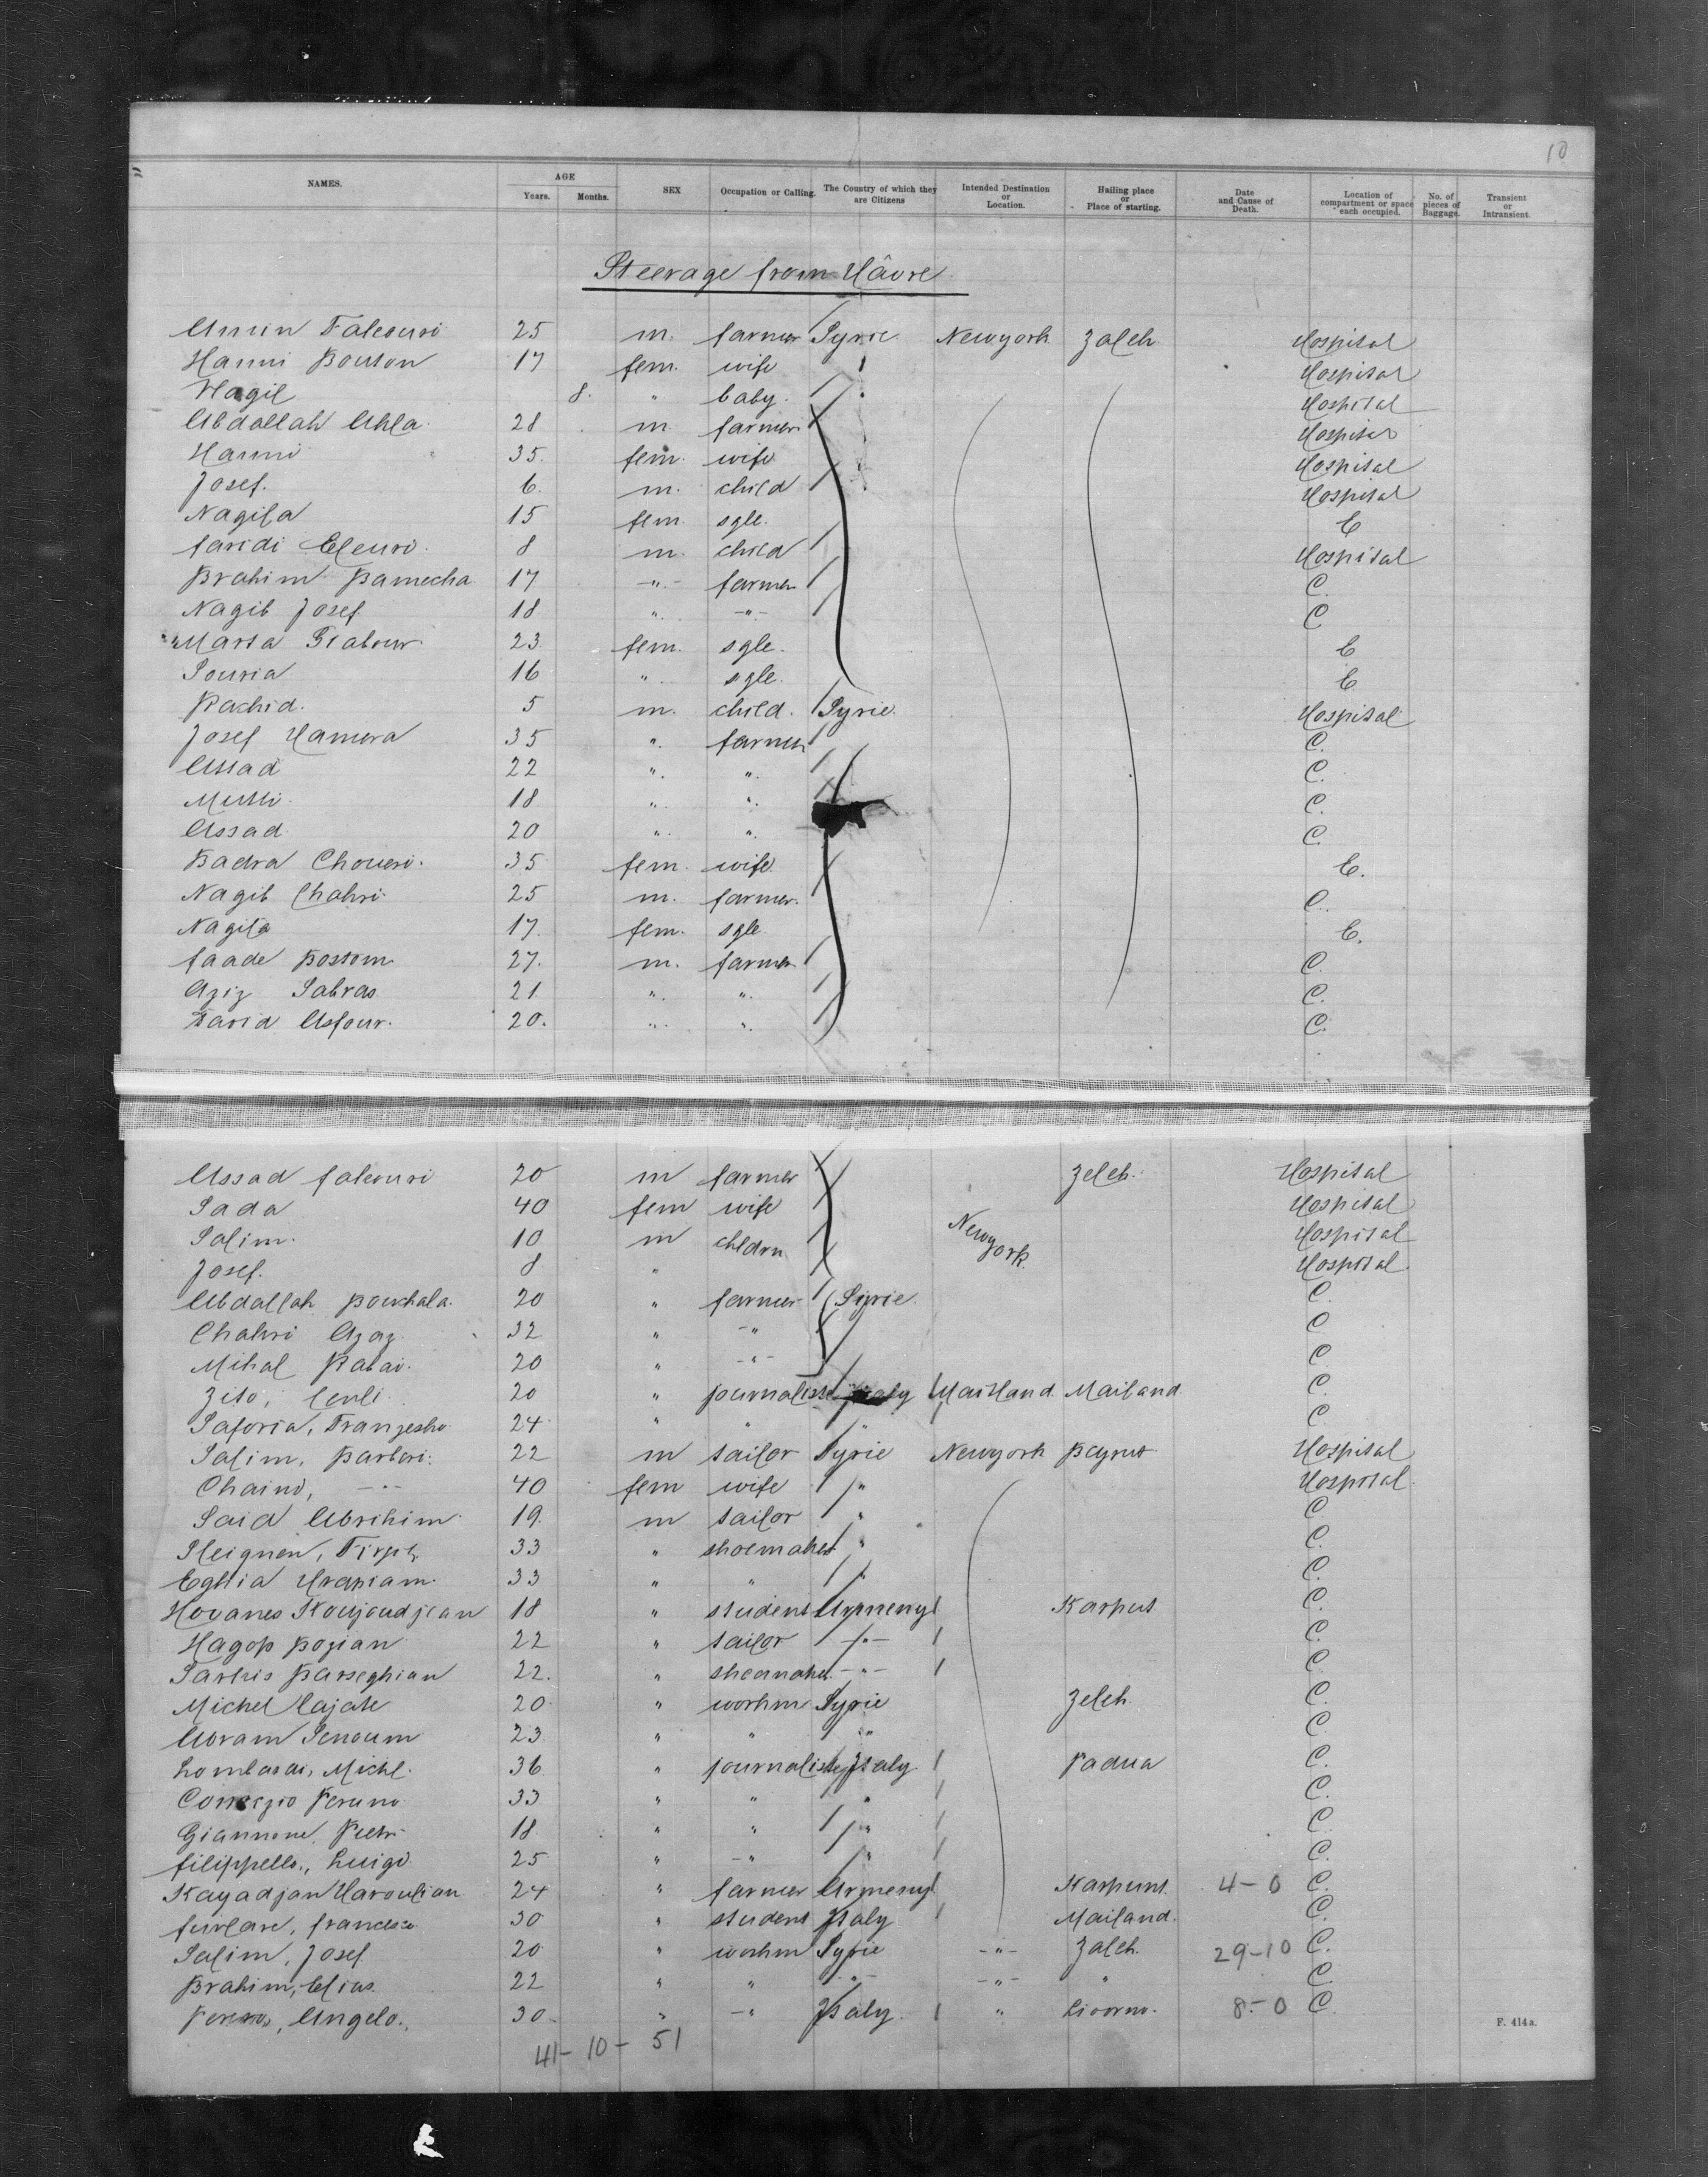 10
NAMES. AGE Years. Months. SEX Occupation or Calling. The Country of which they are Citizens Intended Destination or Location. Hailing place or Place of starting. Date and Cause of Death. Location of compartment or space each occupied. No. of pieces of Baggage. Transient or Intransient.
Steerage from Hâvre
Amin 25 m. farmer Syrie Newyork Zaleh Hospital
Hanni Bouton 17 fem. wife Hospital
8. " baby. Hospital
Abdallah Ahla 28 m farmer Hospital
Hanni 35. fem. wife Hospital
Josef. 6. m. child Hospital
Nagila 15 fem. sgle. C
faridi 8 m. child Hospital
Brahim Bamecha 17 -"- farmer C.
Nagib Josef 18 ". -"- C
Maria 23 fem. sgle. C
Souria 16 ". sgle. C.
Rachid. 5 m. child. Syrie. Hospital
Josef Hamora 35 ". farmer C.
Assad 22 ". ". C.
18 ". ". C.
Assad 20 ". ". C.
Badra Choueri. 35 fem. wife. C.
Nagib Chahri 25 m. farmer. C.
Nagila 17. fem. sgle C.
faade Bostom 27. m. farmer C.
Aziz Sabras 21 ". ". C.
Farid Asfour. 20. ". ". C.
Assad 20 m farmer Zeleh. Hospital
Sada 40 fem wife Hospital
Salim. 10 m chldrn Newyork. Hospital
Josef. 8 " Hospital.
Abdallah Bouchala. 20 " farmer Syrie. C.
Chahri Azaz 32 " -" C
Mihal Rabai. 20 " -"- C
Zito, 20 " journaliste Italy Mailand Mailand C.
Saforia, Franzesko 24 " " " C
Salim, Barberi. 22 m sailor Syrie Newyork Beyrut Hospital
Chaino, -"- 40 fem wife " Hospital.
Said Abrihim 19. m sailor " C
33 " shoemaker " C.
Eghia 33 " " " C.
Hovanes Koujoudjian 18 " student Armeny Karput C.
Hagop Bozian 22 " sailor -"- C.
Sarkis Barseghian 22. " shoemaker -"- C.
Michel 20. " workm Syrie Zeleh. C.
Abram Senoum 23. " " " C.
Lombardi, Michl. 36 " journaliste Italy. Padua C.
33 " " " C.
Giannone, Pietr 18. " " " C.
filippello, Luigi. 25 " -" " C.
Kayadjan Haroutian 24 " farmer Armeny 4-0 C.
francesco 30 " student Italy Mailand. C.
Salim, Josef. 20 " workm Syrie -"- Zaleh. 29-10 C.
Brahim, Elias. 22 " " -"- -"- " C.
Angelo. 30. " -" Italy. " Livorno. 8-0 C.
41-10-51
F. 414a.